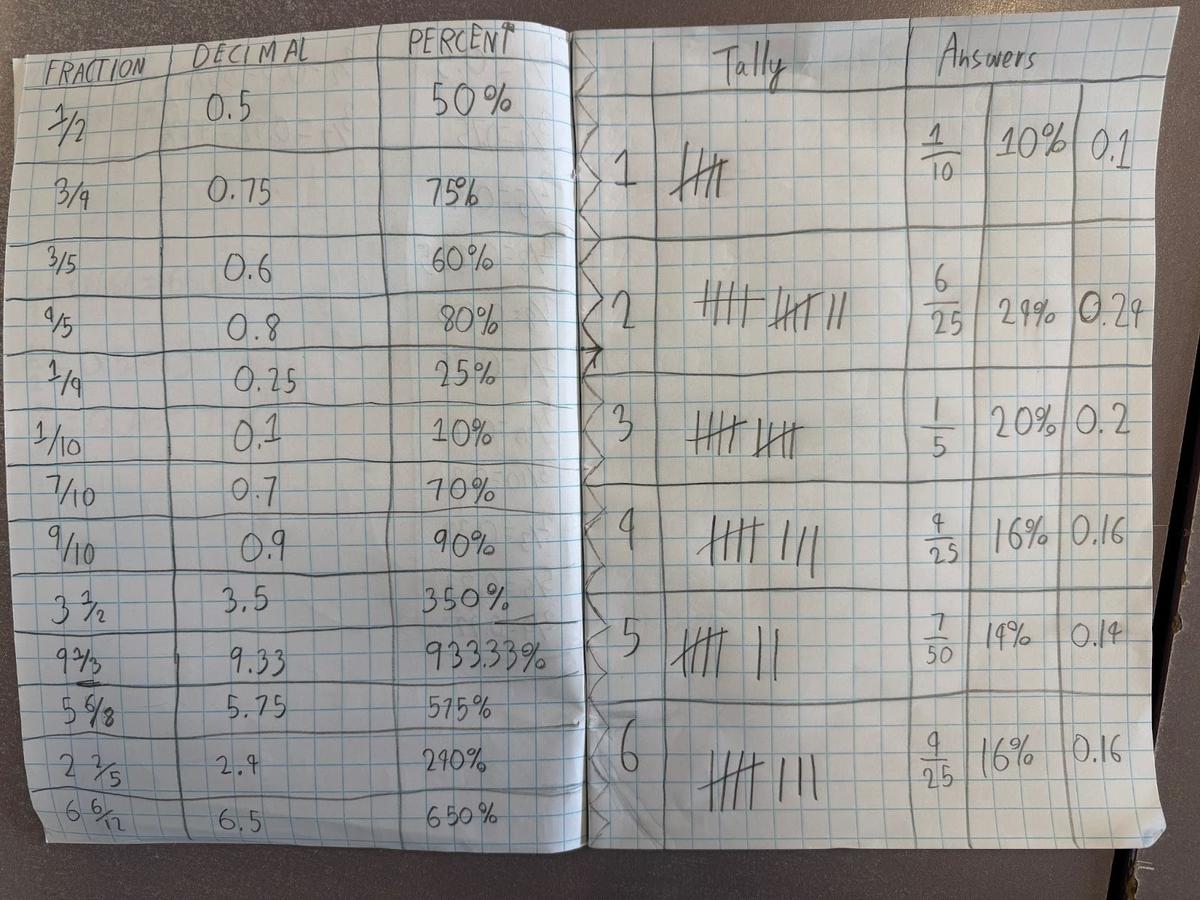 FRACTION DECIMAL PERCENT
1/2 0.5 50%
3/4 0.75 75%
3/5 0.6 60%
4/5 0.8 80%
1/4 0.25 25%
1/10 0.1 10%
7/10 0.7 70%
9/10 0.9 90%
3 1/2 3.5 350%
4 1/3 4.33 433.33%
5 6/8 5.75 575%
2 2/5 2.4 240%
6 6/12 6.5 650%
Tally Answers
1 1/10 10% 0.1
2 6/25 24% 0.24
3 1/5 20% 0.2
4 4/25 16% 0.16
5 7/50 14% 0.14
6 4/25 16% 0.16